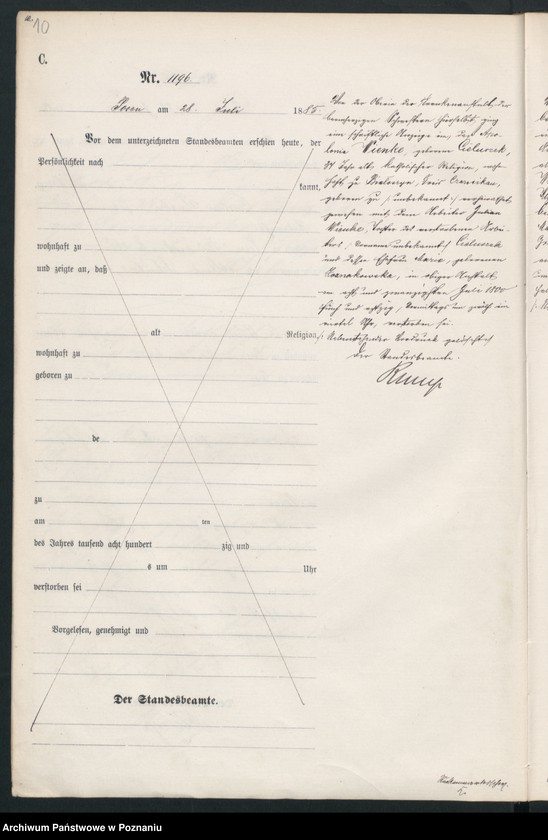 10
C.
Nr. 1196
Posen am 28. Juli 1885.
Vor dem unterzeichneten Standesbeamten erschien heute, der
Persönlichkeit nach
kannt,
wohnhaft zu
und zeigte an, daß
alt Religion,
wohnhaft zu
geboren zu
de
zu
am ten
des Jahres tausend acht hundert zig und
s um Uhr
verstorben sei
Vorgelesen, genehmigt und
Der Standesbeamte.
Von der Oberin der Krankenanstalt der
barmherzigen Schwestern hierselbst ging
eine schriftliche Anzeige ein, daß Apo-
lonia Wienke, geborene Cieluszek,
Jahr alt, katholischer Religion, wohn-
haft zu Kreis Czarnikau,
geboren zu /: unbekannt :/ verheirathet
gewesen mit dem Arbeiter Julian
Wienke, Tochter des verstorbenen Arbei-
ters /: Vorname unbekannt :/ Cieluszek
und dessen Ehefrau Maria, geborenen
in obiger Anstalt,
am acht und zwanzigsten Juli 1800
fünf und achtzig, Vormittags um zwölf ein
viertel Uhr, verstorben sei.
Nebenstehender Vordruck gelöscht.
Der Standesbeamte.
Archiwum Państwowe w Poznaniu